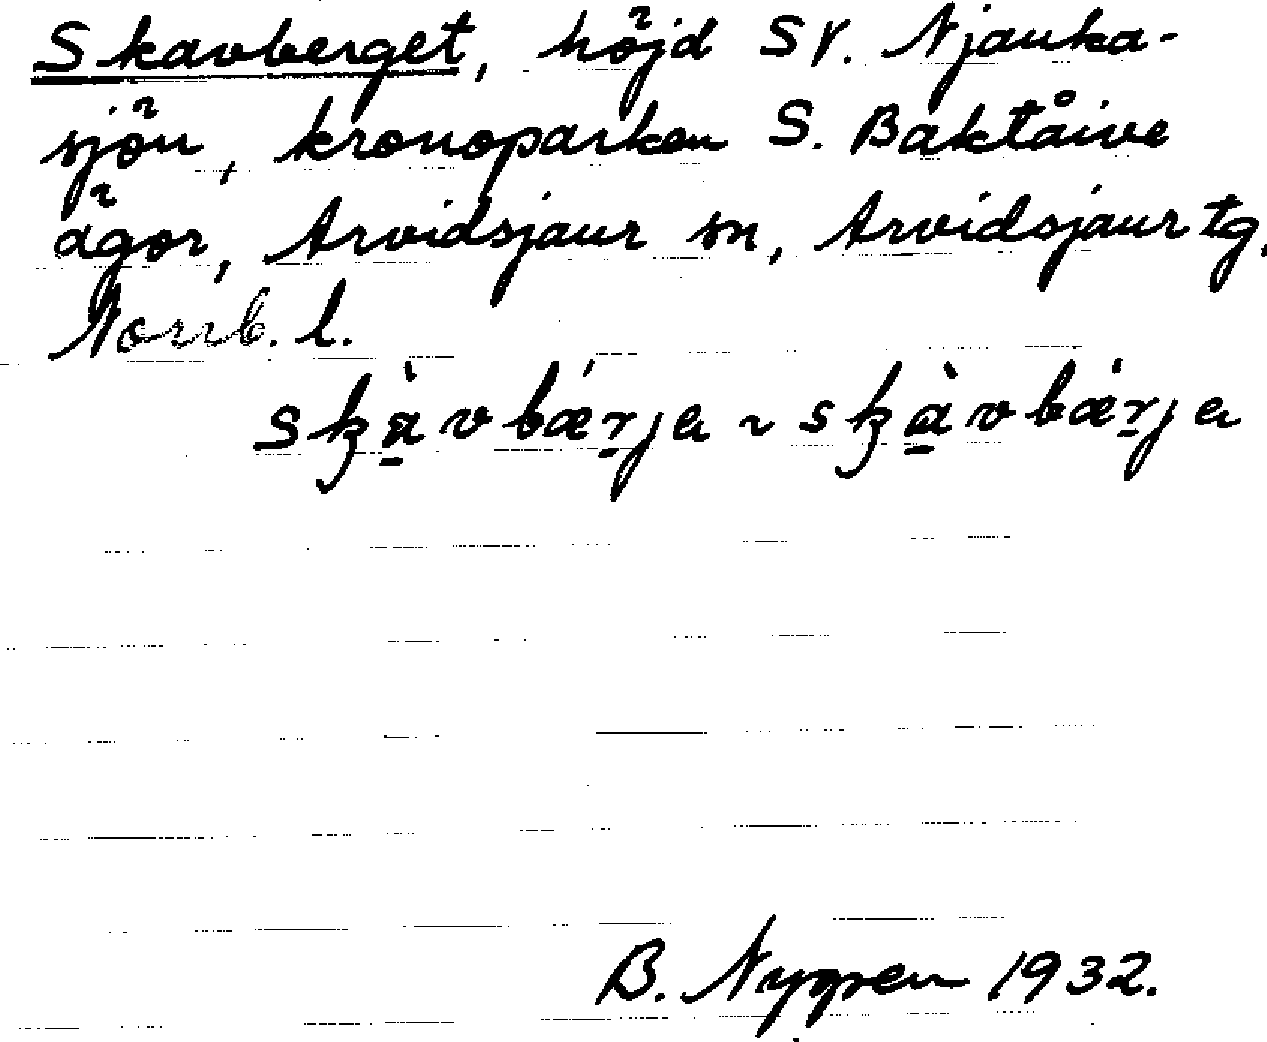 Skavberget, höjd SV. Njauka-
sjön, kronoparken S. Baktåive
ägor, Arvidsjaur sn, Arvidsjaur tg,
Norrb. l.
skàvbǽrja ~ skàvbǽrja
B. Nygren 1932.